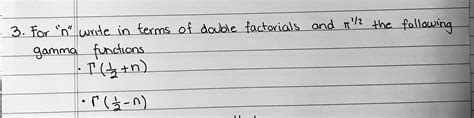 3. For "n" write in terms of double factorials and π^1/2 the following
gamma functions
· Γ(1/2 + n)
· Γ(1/2 - n)